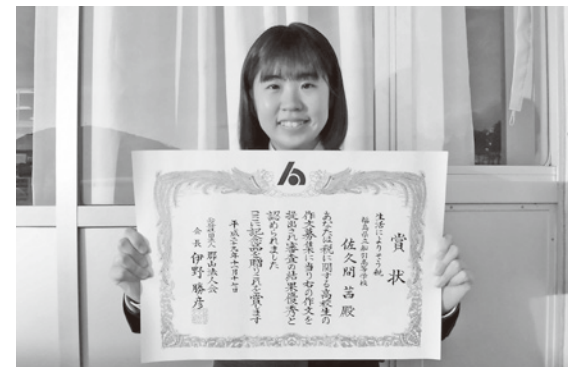 賞状
生活によりそう税
福島県立船引高等学校
佐久間 茜 殿
あなたは税に関する高校生の
作文募集に当り右の作文を
提出され審査の結果優秀と
認められました
ここに記念品を贈りこれを賞します
平成二十九年十一月十七日
公益社団法人 郡山法人会
会長 伊野勝彦